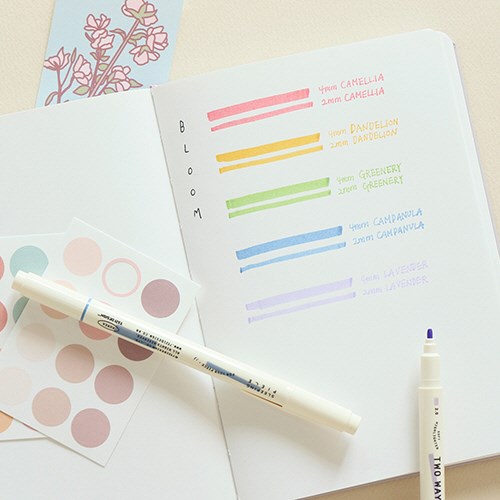 BLOOM
4mm CAMELLIA
2mm CAMELLIA
4mm DANDELION
2mm DANDELION
4mm GREENERY
2mm GREENERY
4mm CAMPANULA
2mm CAMPANULA
4mm LAVENDER
2mm LAVENDER
TWO WAY